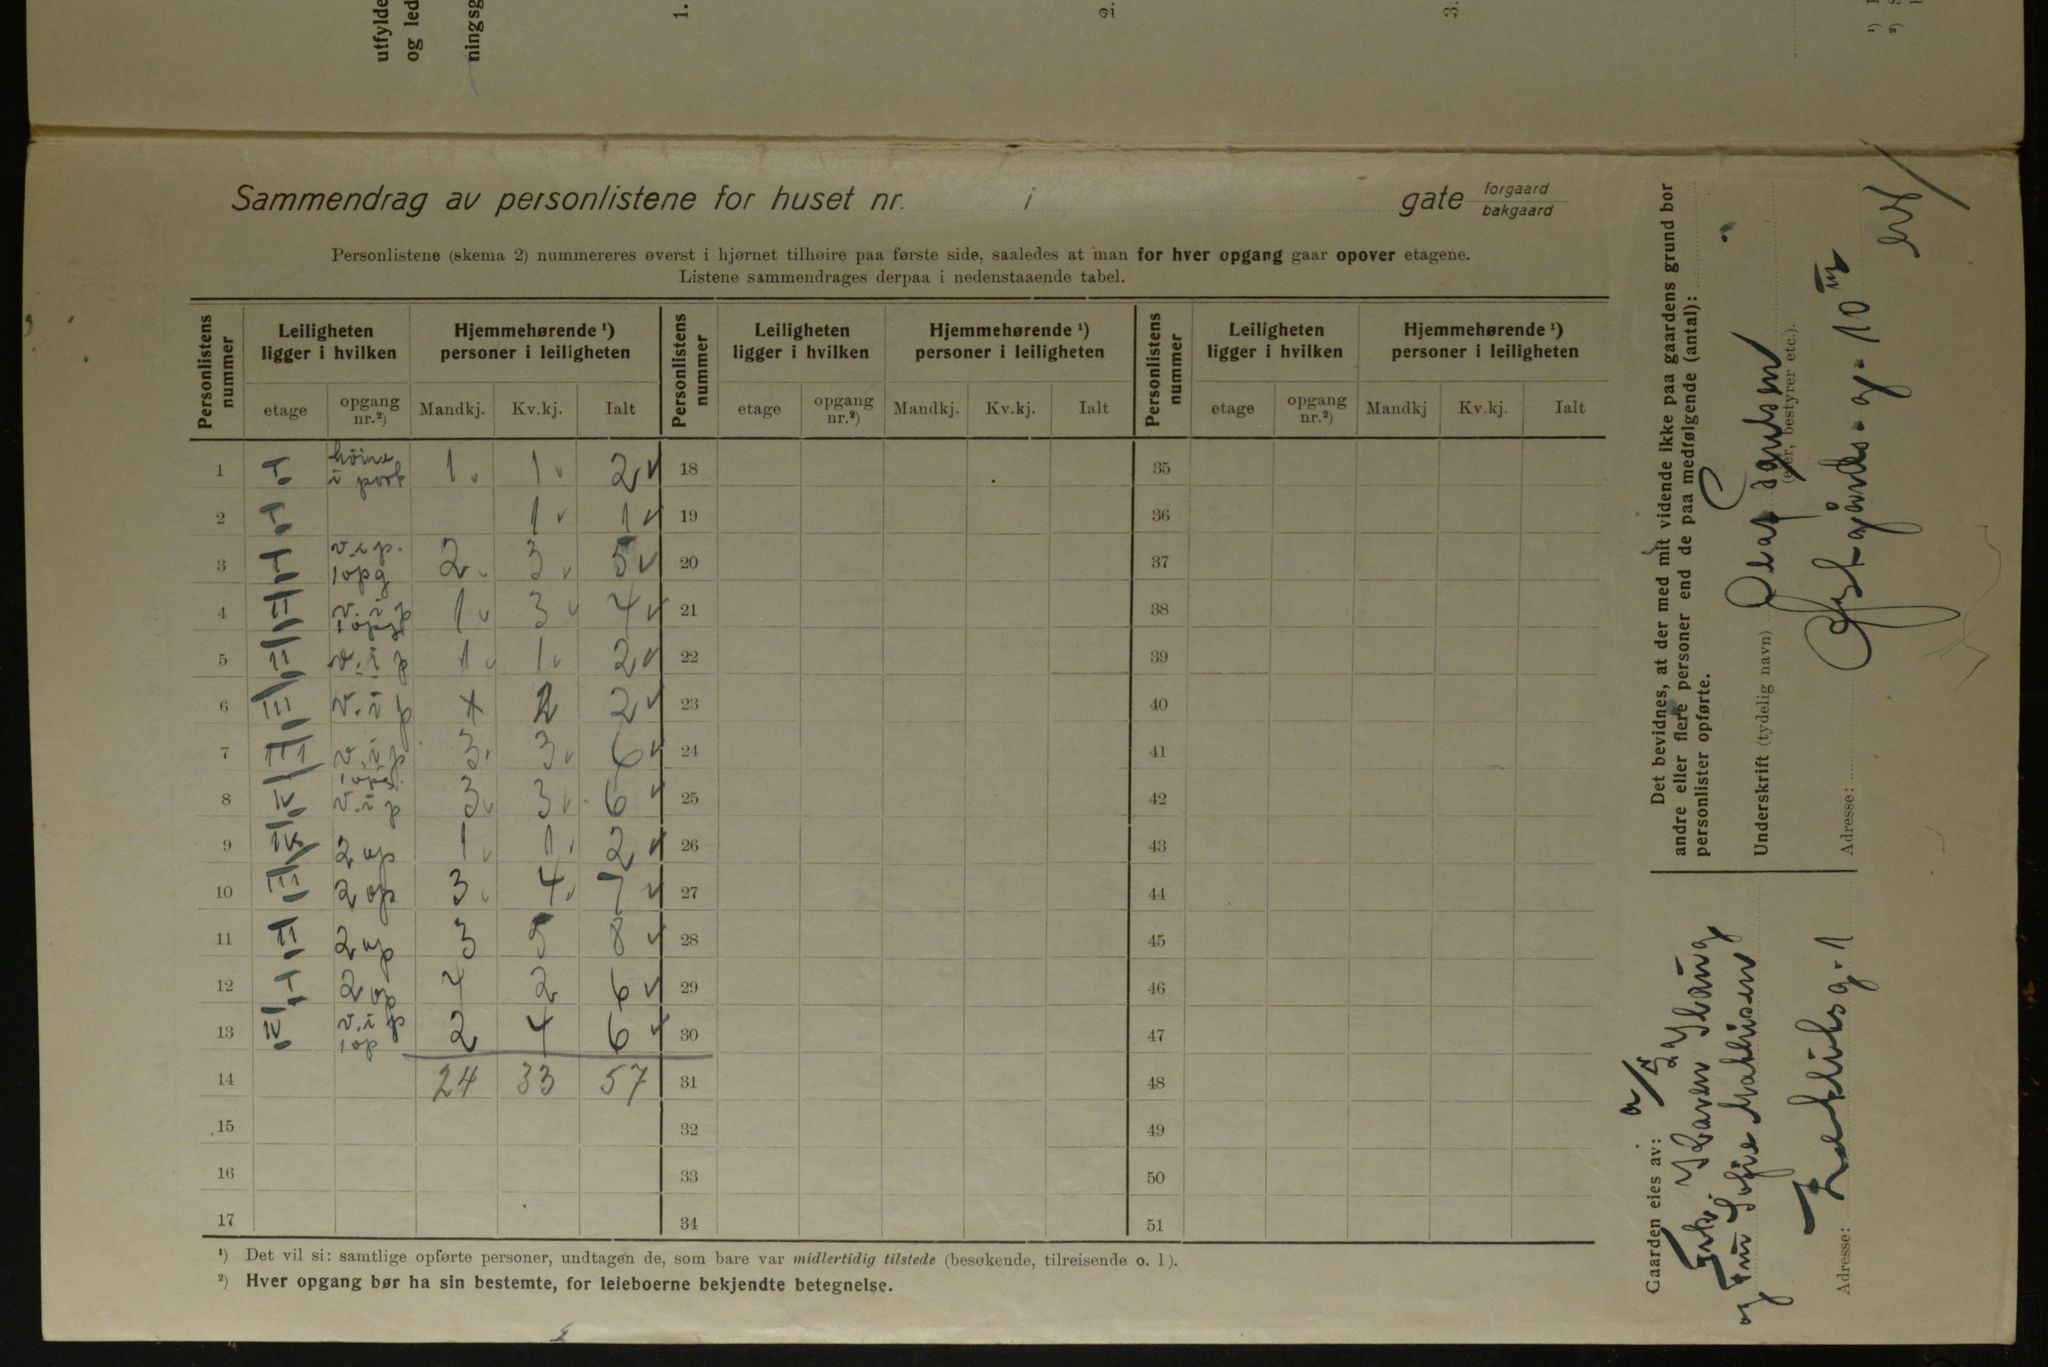 utfylde
og led
ningsg
1.
2.
3.
Sammendrag av personlistene for huset nr. i gate forgaard
bakgaard
Personlistene (skema 2) nummereres øverst i hjørnet tilhøire paa første side, saaledes at man for hver opgang gaar opover etagene.
Listene sammendrages derpaa i nedenstaaende tabel.
Personlistens nummer | Leiligheten ligger i hvilken | Hjemmehørende ¹) personer i leiligheten | Personlistens nummer | Leiligheten ligger i hvilken | Hjemmehørende ¹) personer i leiligheten | Personlistens nummer | Leiligheten ligger i hvilken | Hjemmehørende ¹) personer i leiligheten
etage | opgang nr.²) | Mandkj. | Kv.kj. | Ialt | etage | opgang nr.²) | Mandkj. | Kv.kj. | Ialt | etage | opgang nr.²) | Mandkj | Kv.kj. | Ialt
1 I høire i port 1 v 1 v 2 v 18 35
2 I 1 v 1 v 19 36
3 I v.i p. 1 opg 2 v 3 v 5 v 20 37
4 II v.i p 1 opg 1 v 3 v 4 v 21 38
5 II v.i p 1 v 1 v 2 v 22 39
6 III v.i p x 2 2 v 23 40
7 III v.i p 3 v 3 v 6 v 24 41
8 IV 1 opg. v.i p 3 v 3 v 6 v 25 42
9 IV 2 op 1 v 1 v 2 v 26 43
10 III 2 op 3 v 4 v 7 v 27 44
11 II 2 op 3 5 8 v 28 45
12 I 2 op 4 2 6 v 29 46
13 IV v.i p 1 op 2 4 6 v 30 47
14 24 33 57 31 48
15 32 49
16 33 50
17 34 51
¹) Det vil si: samtlige opførte personer, undtagen de, som bare var midlertidig tilstede (besøkende, tilreisende o. l).
²) Hver opgang bør ha sin bestemte, for leieboerne bekjendte betegnelse.
Det bevidnes, at der med mit vidende ikke paa gaardens grund bor
andre eller flere personer end de paa medfølgende (antal):
personlister opførte.
Underskrift (tydelig navn)
(eier, bestyrer etc.).
Adresse: gårds g. 10
Gaarden eies av:
Karen
og Fru Sofie Mathisen
Adresse: g. 1